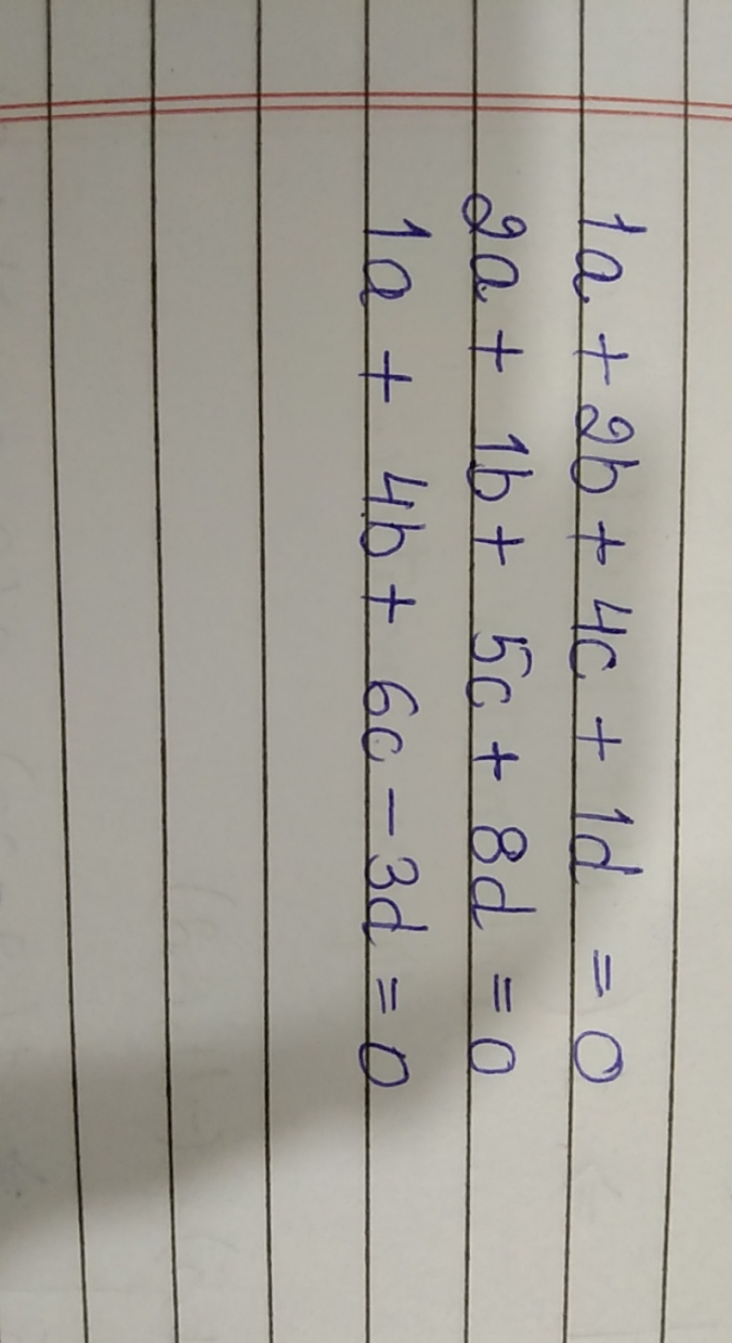 1a + 2b + 4c + 1d = 0
2a + 1b + 5c + 8d = 0
1a + 4b + 6c - 3d = 0